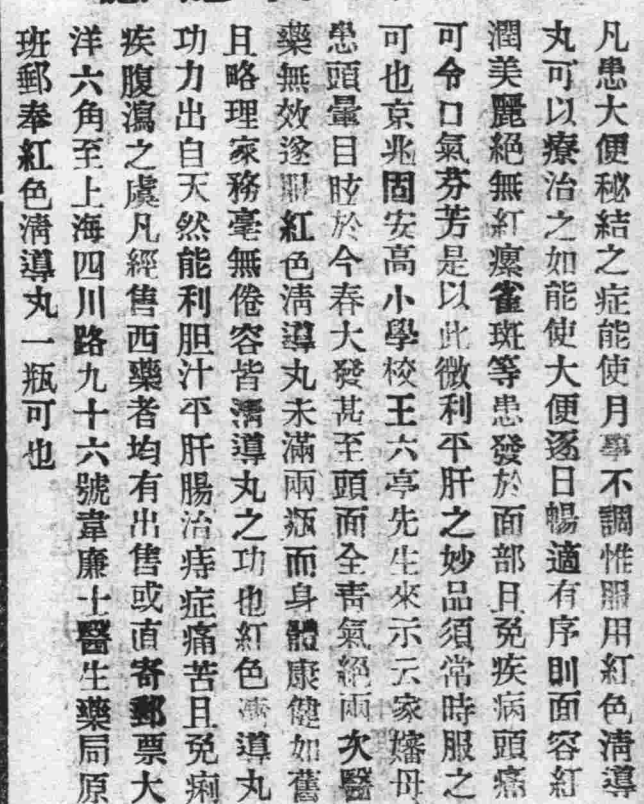 凡患大便秘結之症能使月學不調惟服用紅色淸導
丸可以療治之如能使大便逐日暢適有序則面容紅
潤美麗絕無紅瘰雀斑等患發於面部且免疾病頭痛
可令口氣芬芳是以此微利平肝之妙品須常時服之
可也京兆固安高小學校王六亭先生來示云家嬸母
患頭暈目眩於今春大發甚至頭面全靑氣絕兩次醫
藥無效遂服紅色淸導丸未滿兩瓶而身體康健如舊
且略理家務毫無倦容皆淸導丸之功也紅色淸導丸
功力出自天然能利胆汁平肝腸治痔症痛苦且免痢
疾腹瀉之虞凡經售西藥者均有出售或直寄郵票大
洋六角至上海四川路九十六號韋廉士醫生藥局原
班郵奉紅色淸導丸一瓶可也